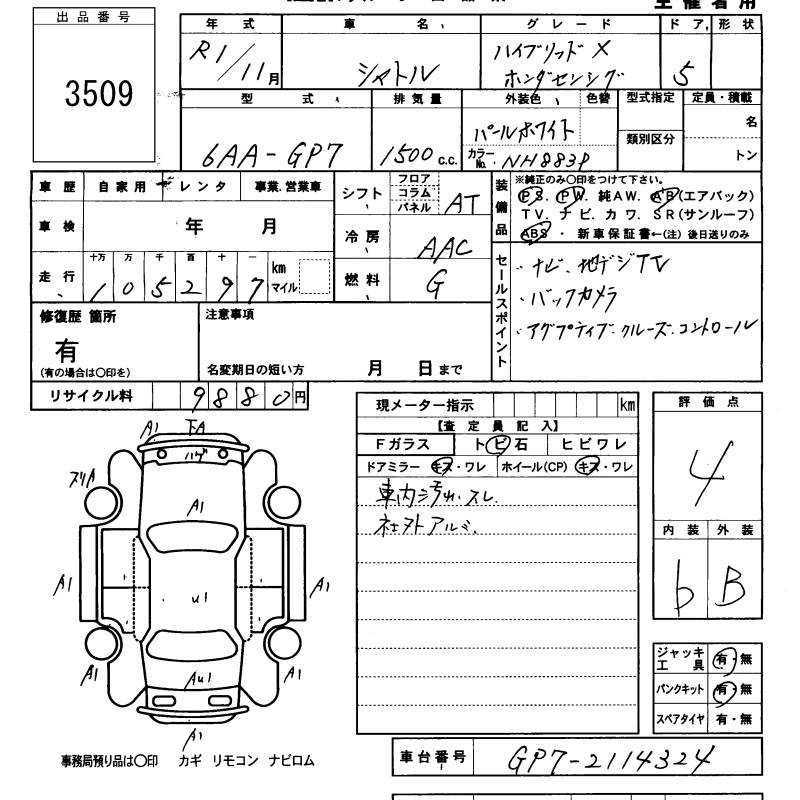 主催者用
出品番号
3509
年式 車名 グレード ドア 形状
R1/11月 シャトル ハイブリッド X ホンダセンシング 5
型式 排気量 外装色 色替 型式指定 定員・積載
6AA-GP7 1500 c.c. パールホワイト 類別区分 名
カラーNo. NH883P トン
車歴 自家用 レンタ 事業.営業車
車検 年 月
走行 十万 万 千 百 十 一 km マイル
105297
シフト フロア コラム パネル AT
冷房 AAC
燃料 G
装備品
※純正のみ〇印をつけて下さい。
PS. PW. 純AW. AB(エアバック)
TV. ナビ. カワ. SR(サンルーフ)
ABS ・ 新車保証書←(注) 後日送りのみ
セールスポイント
・ナビ・地デジTV
・バックカメラ
・アダプティブ・クルーズ・コントロール
修復歴 箇所
有
(有の場合は〇印を)
注意事項
名変期日の短い方 月 日まで
リサイクル料 9880円
現メーター指示 km
【査定員記入】
Fガラス トビ石 ヒビワレ
ドアミラー キズ・ワレ ホイール(CP) キズ・ワレ
車内汚れ・スレ
社外アルミ
評価点
4
内装 外装
b B
ジャッキ工具 有・無
パンクキット 有・無
スペアタイヤ 有・無
A1 下A
ハゲ
スリA
A1
A1 U1 A1
A1 AU1 A1
A1
事務局預り品は〇印 カギ リモコン ナビロム
車台番号 GP7-2114324